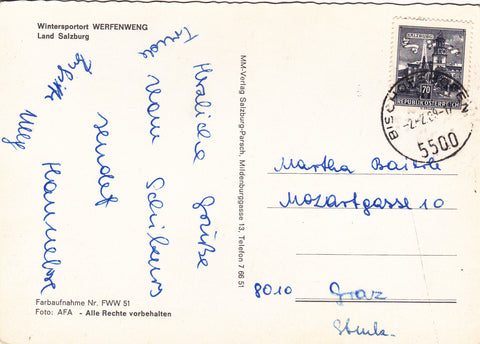 Wintersportort WERFENWENG
Land Salzburg
Herzliche Grüße
vom Schikurs
sendet
Hannelore
MM-Verlag Salzburg-Parsch, Mildenburggasse 13, Telefon 7 66 51
SALZBURG
70
REPUBLIK ÖSTERREICH
BISCHOFSHOFEN
5500
Martha
Mozartgasse 10
8010 Graz
Stmk.
Farbaufnahme Nr. FWW 51
Foto: AFA - Alle Rechte vorbehalten